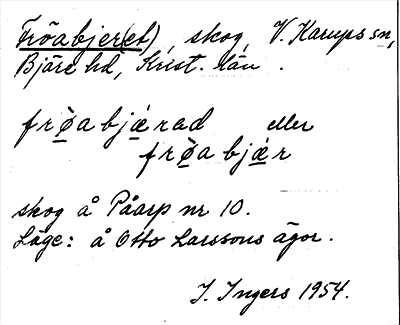 Fröabjer(et), skog, V. Karups sn,
Bjäre hd, Krist. län.
frø̀abjǽrad eller
frø̀abjǽr
skog å Påarp nr 10.
Läge: å Otto Larssons ägor.
I. Ingers 1954.